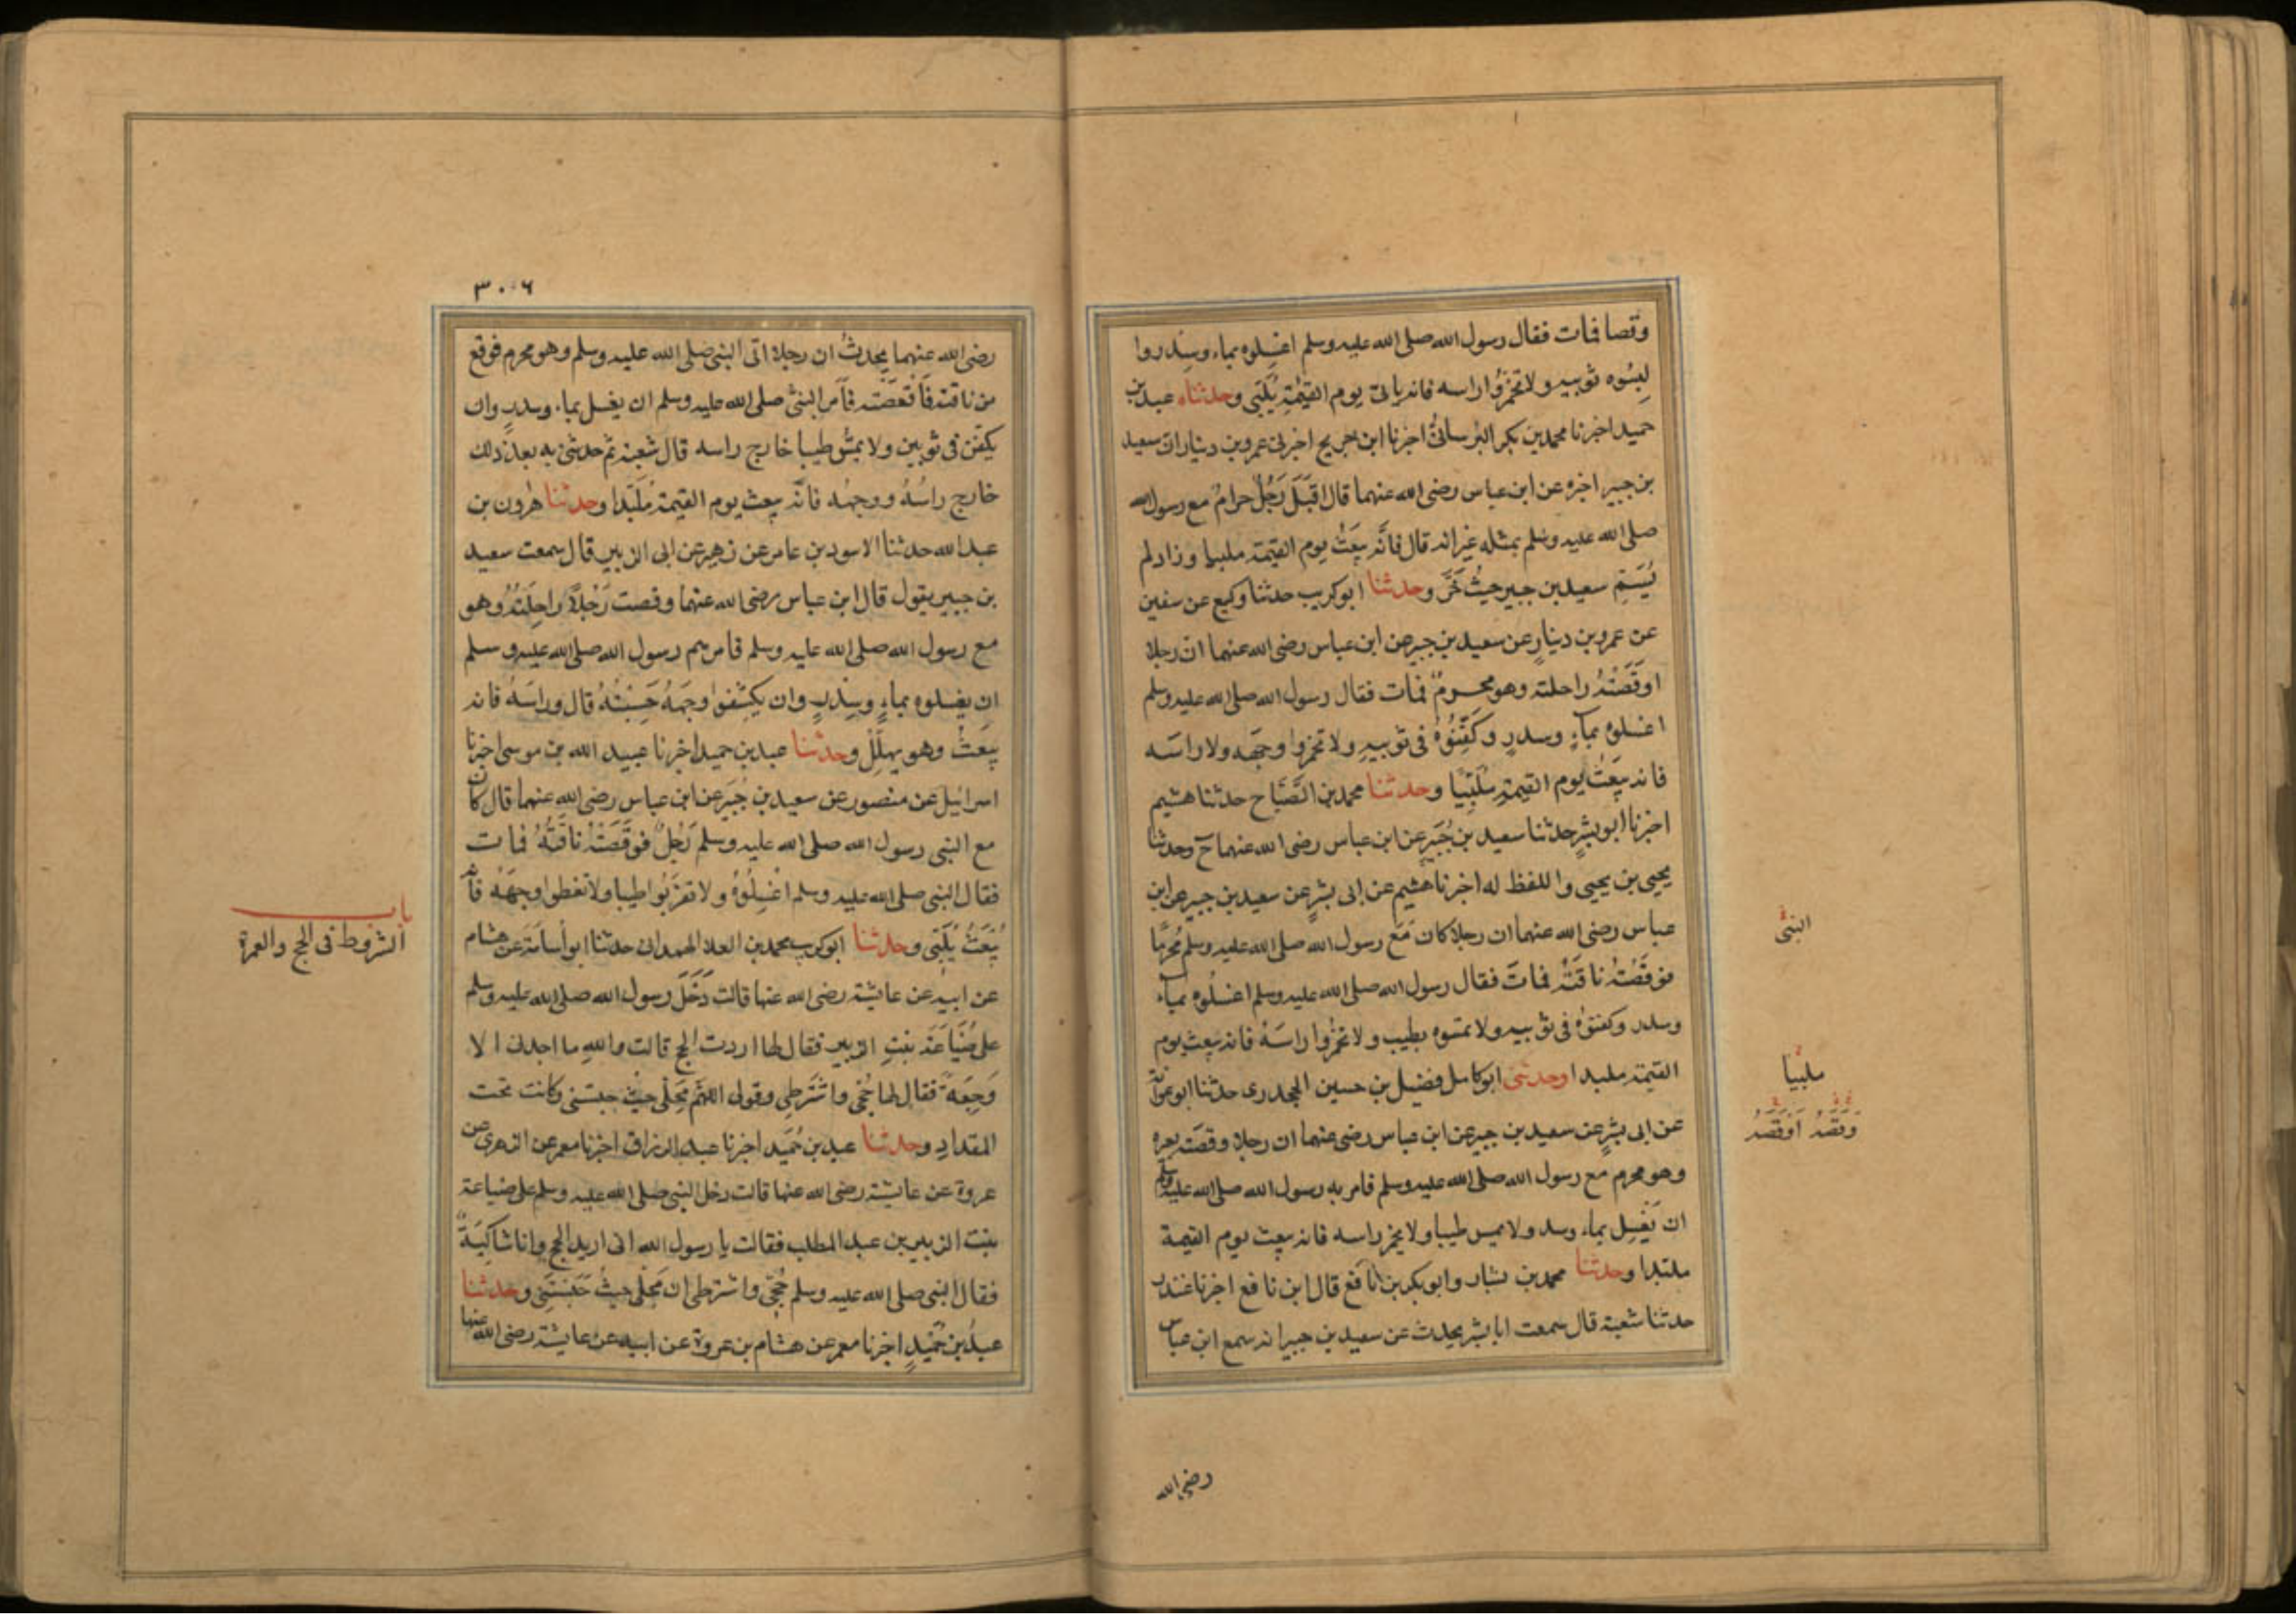 وقصا فمات فقال رسول الله صلى الله عليه وسلم اغسلوه بماء وسدر وا
لبسوه ثوبيه ولا تخمروا راسه فانه ياتى يوم القيمة يلبى وحدثناه عبد بن
حميد اخبرنا محمد بن بكر البرسانى اخبرنا ابن جريج اخبرنى عمرو بن دينار ان سعيد
بن جبير اخبره عن ابن عباس رضى الله عنهما قال اقبل رجل حرام مع رسول الله
صلى الله عليه وسلم بمثله غير انه قال فانه يبعث يوم القيمة ملبيا وزاد لم
يسم سعيد بن جبير حيث خر وحدثنا ابو كريب حدثنا وكيع عن سفين
عن عمرو بن دينار عن سعيد بن جبير عن ابن عباس رضى الله عنهما ان رجلا
اوقصته راحلته وهو محرم فمات فقال رسول الله صلى الله عليه وسلم
اغسلوه بماء وسدر وكفنوه فى ثوبيه ولا تخمروا وجهه ولا راسه
فانه يبعث يوم القيمة ملبيا وحدثنا محمد بن الصباح حدثنا هشيم
اخبرنا ابو بشر حدثنا سعيد بن جبير عن ابن عباس رضى الله عنهما ح وحدثنا
يحيى بن يحيى واللفظ له اخبرنا هشيم عن ابى بشر عن سعيد بن جبير عن ابن
عباس رضى الله عنهما ان رجلا كان مع رسول الله صلى الله عليه وسلم محرما
فوقصته ناقته فمات فقال رسول الله صلى الله عليه وسلم اغسلوه بماء
وسدر وكفنوه فى ثوبيه ولا تمسوه بطيب ولا تخمروا راسه فانه يبعث يوم
القيمة ملبدا وحدثنى ابو كامل فضيل بن حسين الجحدرى حدثنا ابو عوانة
عن ابى بشر عن سعيد بن جبير عن ابن عباس رضى عنهما ان رجلا وقصته بعيره
وهو محرم مع رسول الله صلى الله عليه وسلم فامر به رسول الله صلى الله عليه وسلم
ان يغسل بماء وسدر ولا يمس طيبا ولا يخمر راسه فانه يبعث يوم القيمة
ملبدا وحدثنا محمد بن بشار وابو بكر بن نافع قال ابن نافع اخبرنا غندر
حدثنا شعبة قال سمعت ابا بشر يحدث عن سعيد بن جبير انه سمع ابن عباس
النبى
ملبيا
وقصه اوقصه
رضى الله
٣٠٦
رضى الله عنهما يحدث ان رجلا اتى النبى صلى الله عليه وسلم وهو محرم فوقع
من ناقته فاقعصته فامر النبى صلى الله عليه وسلم ان يغسل بماء وسدر وان
يكفن فى ثوبين ولا يمس طيبا خارج راسه قال شعبة ثم حدثنى به بعد ذلك
خارج راسه ووجهه فانه يبعث يوم القيمة ملبدا وحدثنا هرون بن
عبد الله حدثنا الاسود بن عامر عن زهير عن ابى الزبير قال سمعت سعيد
بن جبير يقول قال ابن عباس رضى الله عنهما وقصت رجلا راحلته وهو
مع رسول الله صلى الله عليه وسلم فامرهم رسول الله صلى الله عليه وسلم
ان يغسلوه بماء وسدر وان يكشفوا وجهه حسبته قال وراسه فانه
يبعث وهو يهلل وحدثنا عبد بن حميد اخبرنا عبيد الله بن موسى اخبرنا
اسرائيل عن منصور عن سعيد بن جبير عن ابن عباس رضى الله عنهما قال كان
مع النبى رسول الله صلى الله عليه وسلم رجل فوقصته ناقته فمات
فقال النبى صلى الله عليه وسلم اغسلوه ولا تقربوا طيبا ولا تغطوا وجهه فانه
يبعث يلبى وحدثنا ابو كريب محمد بن العلا الهمدانى حدثنا ابو أسامة عن هشام
عن ابيه عن عايشة رضى الله عنها قالت دخل رسول الله صلى الله عليه وسلم
على ضباعة بنت الزبير فقال لها اردت الحج قالت والله ما اجدنى الا
وجعة فقال لها حجى واشترطى وقولى اللهم محلى حيث حبستنى وكانت تحت
المقداد وحدثنا عبد بن حميد اخبرنا عبد الرزاق اخبرنا معمر عن الزهرى عن
عروة عن عايشة رضى الله عنها قالت دخل النبى صلى الله عليه وسلم على ضباعة
بنت الزبير بن عبد المطلب فقالت يا رسول الله انى اريد الحج وانا شاكية
فقال النبى صلى الله عليه وسلم حجى واشترطى ان محلى حيث حبستنى وحدثنا
عبد بن حميد اخبرنا معمر عن هشام بن عروة عن ابيه عن عايشة رضى الله عنها
باب
الشروط فى الحج والعمرة